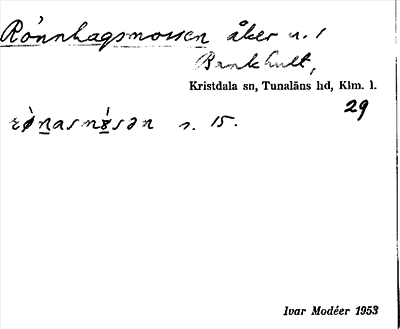 Rönnhagsmossen åker n. 1
Brukhult,
Kristdala sn, Tunaläns hd, Klm. l.
29
s. 15.
Ivar Modéer 1953